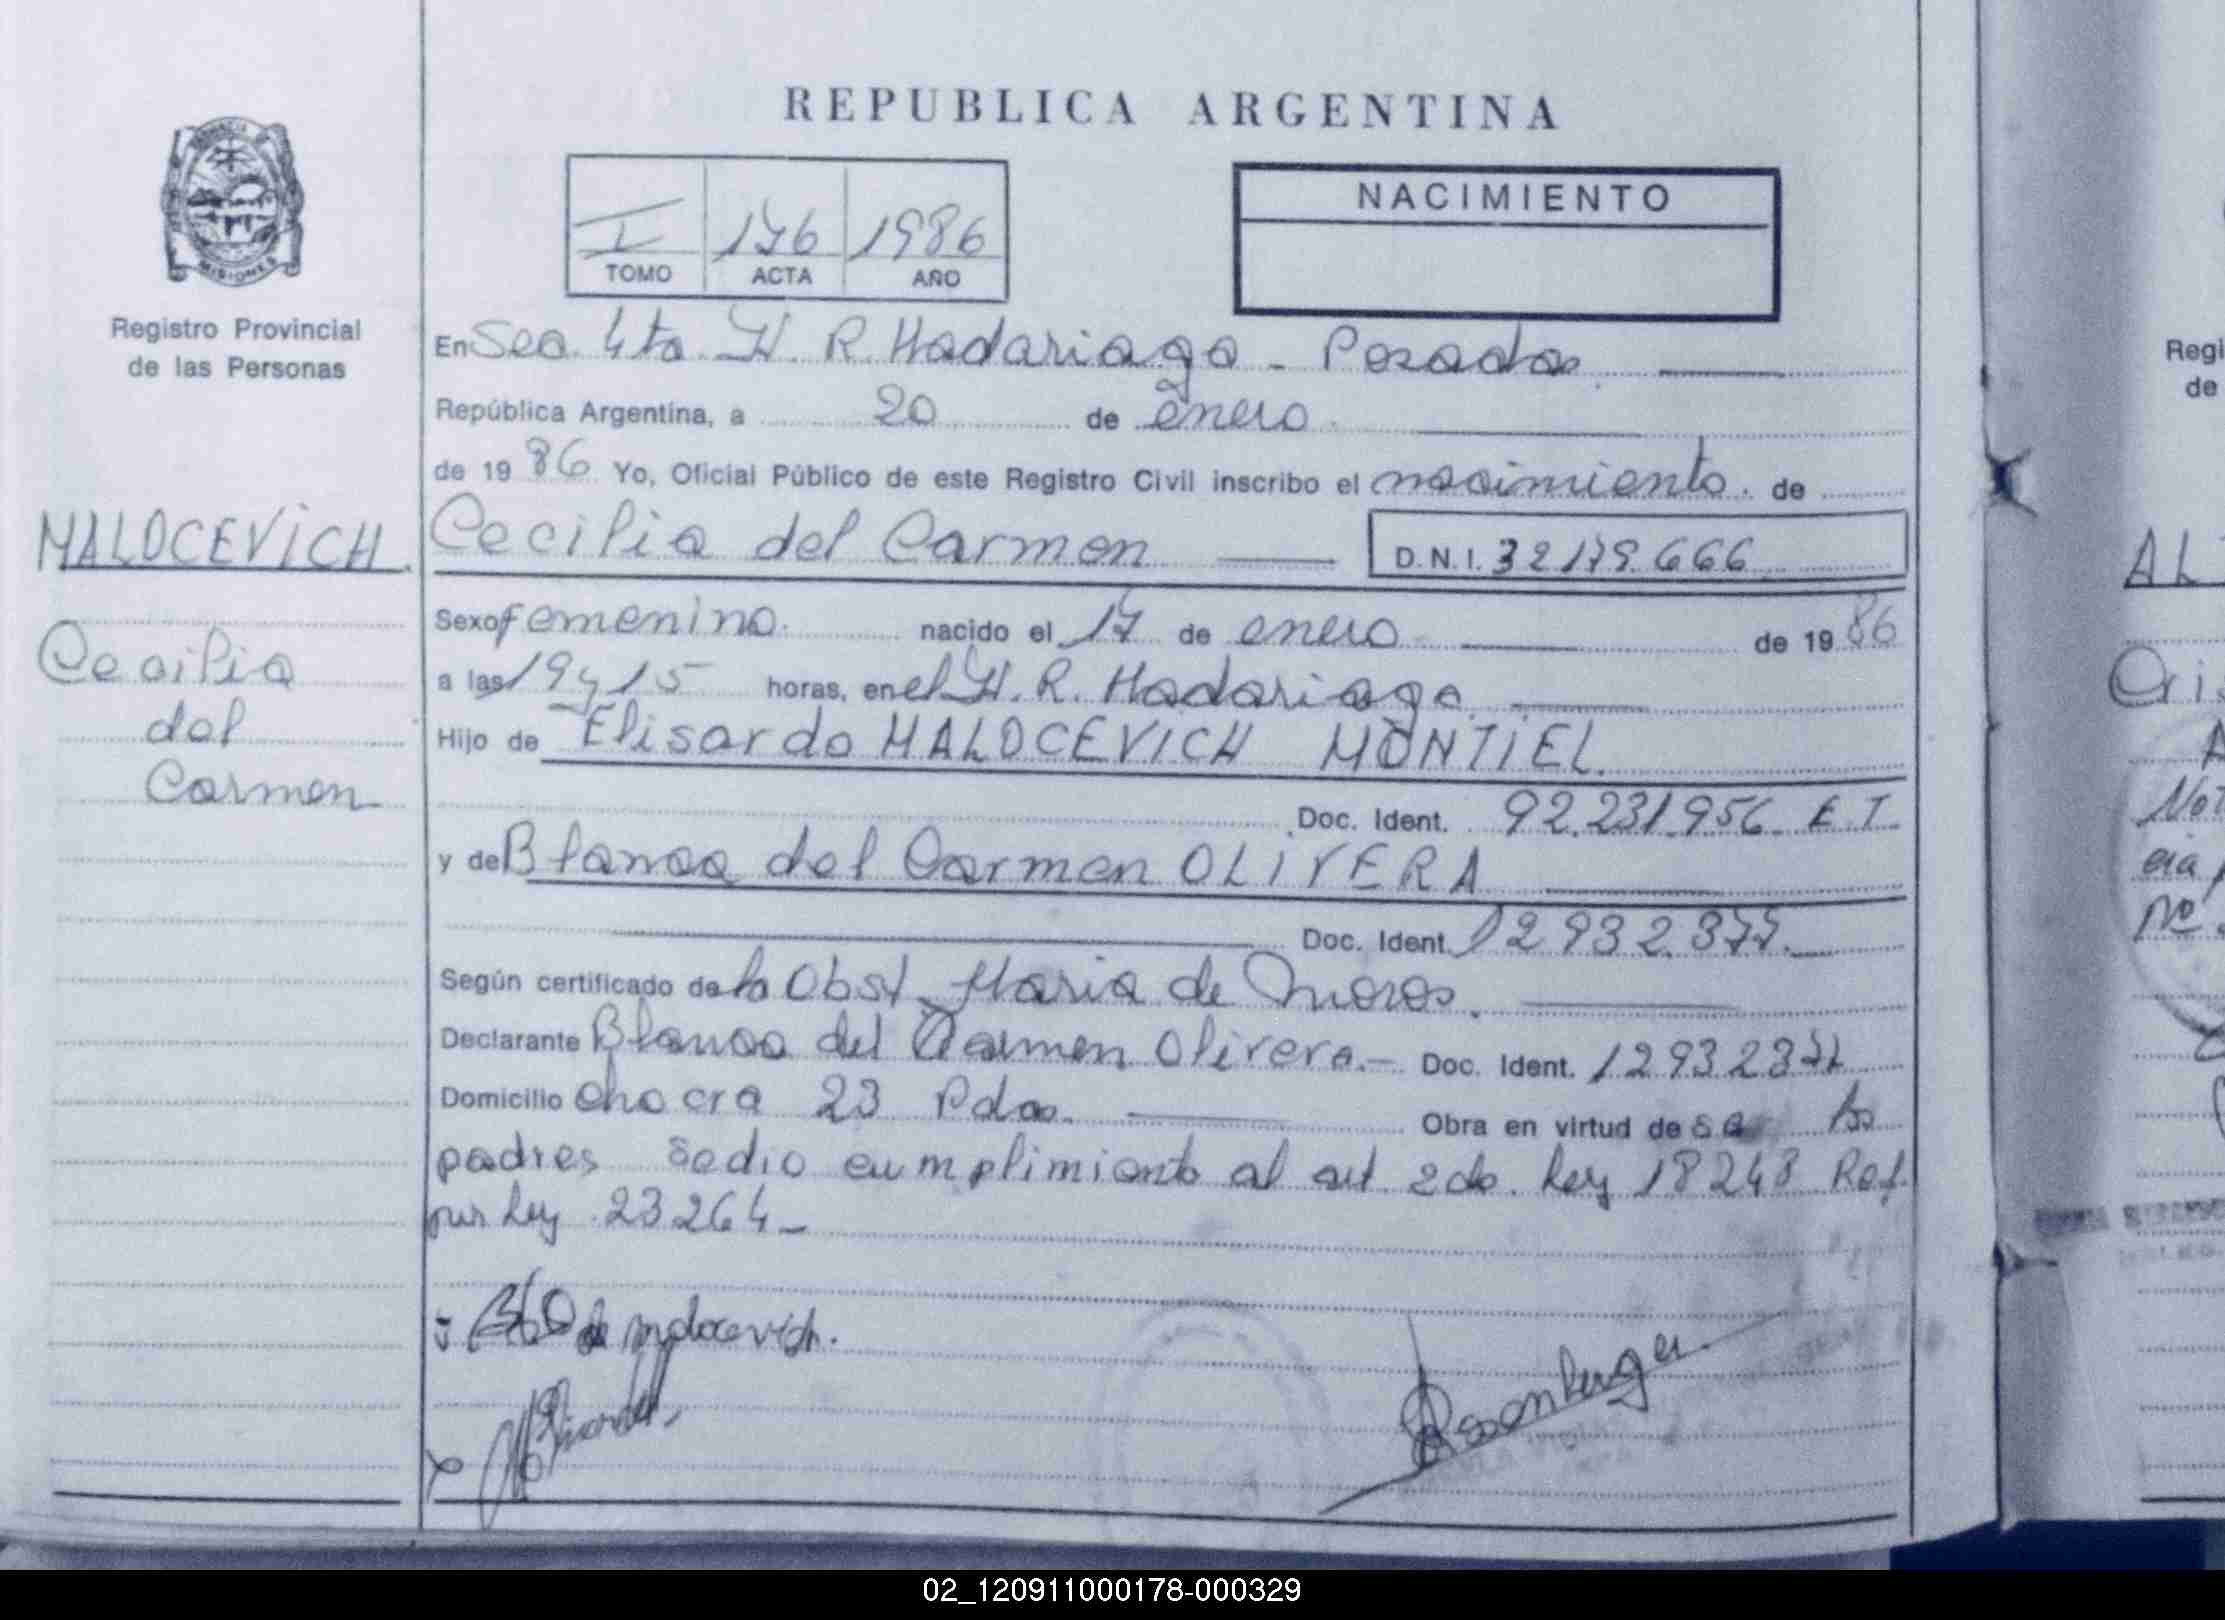 REPUBLICA ARGENTINA
PROVINCIA
MISIONES
Registro Provincial
de las Personas
I 176 1986
TOMO ACTA AÑO
NACIMIENTO
En Sec. 4ta H. R. Madariaga - Posadas
República Argentina, a 20 de enero
de 1986 Yo, Oficial Público de este Registro Civil inscribo el nacimiento. de
MALOCEVICH.
Cecilia
del
Carmen
Cecilia del Carmen D.N.I. 32179.666
Sexo femenino. nacido el 17 de enero de 1986
a las 19 y 15 horas, en el H. R. Madariaga.
Hijo de Elisardo MALOCEVICH MONTIEL.
Doc. Ident. 92.231.956 E.T.
y de Blanca del Carmen OLIVERA
Doc. Ident. 12932.377.
Según certificado de la Obst. Maria de
Declarante Blanca del Carmen Olivera.- Doc. Ident.
Domicilio Chacra 23 Pdas. Obra en virtud de los
padres se dio cumplimiento al art. 2do. Ley 18248 Ref.
por Ley 23264-
de Malocevich.
Regi
de
AL
Cri
A
Not
cia
Nº
02_120911000178-000329